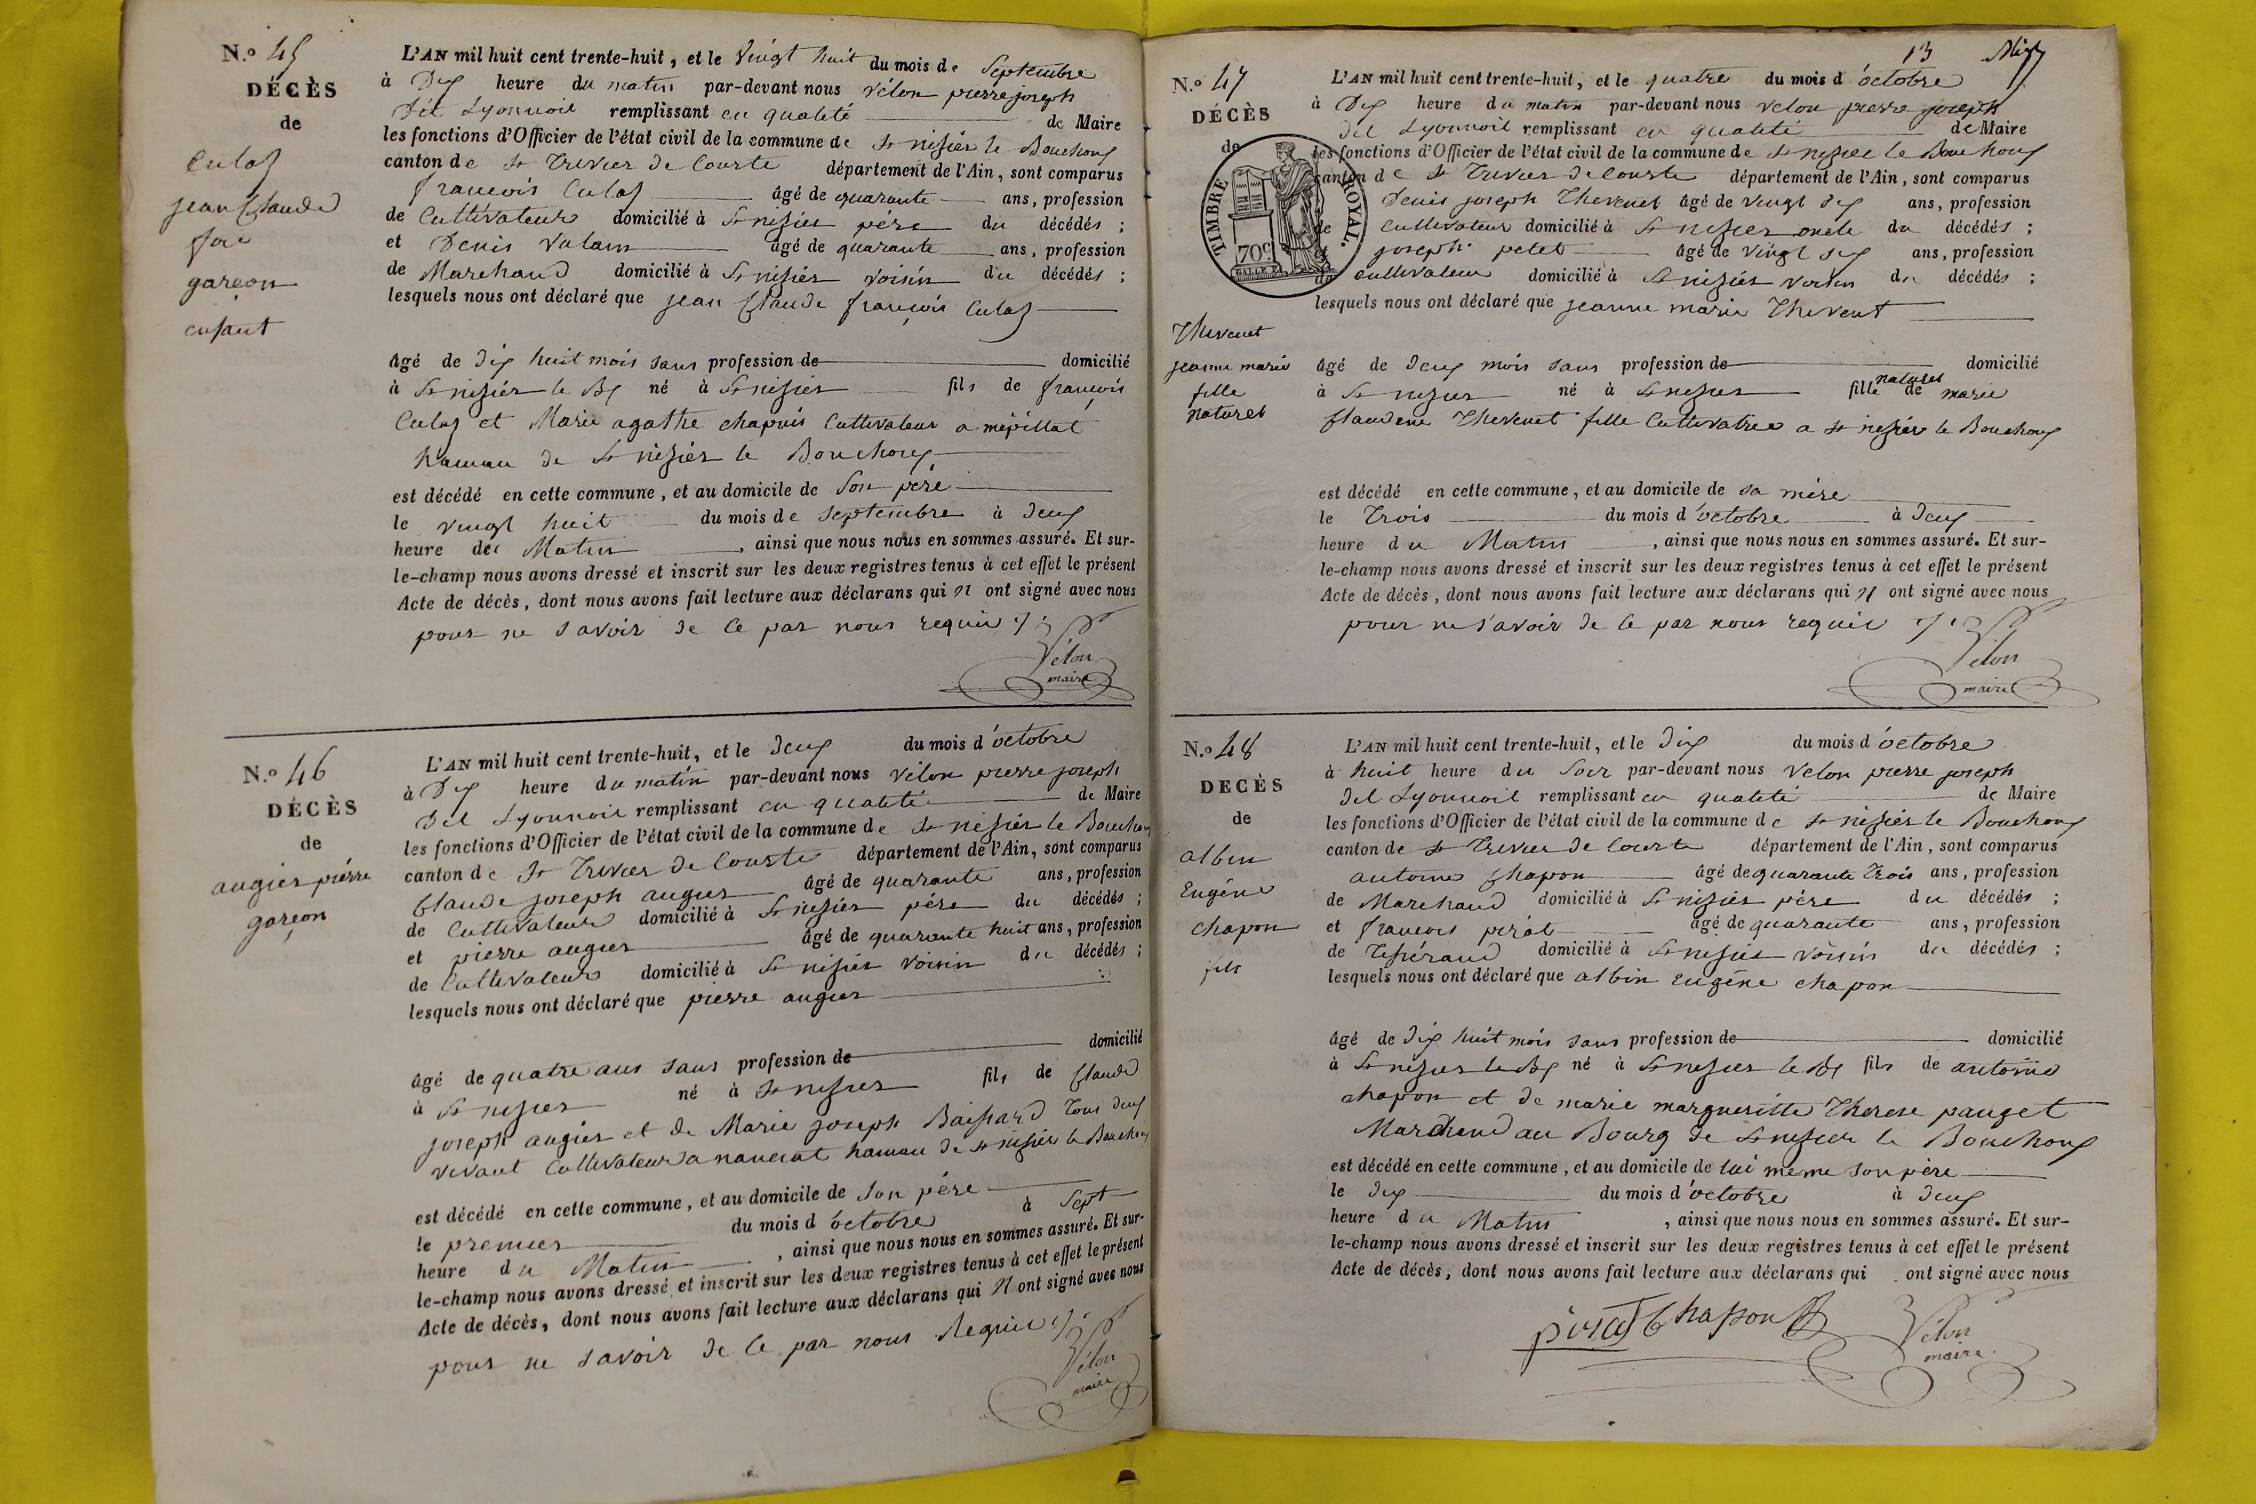 N.º 45
DÉCÈS
de
Culaz
jean Claude
fois
garçon
enfant
L'AN mil huit cent trente-huit, et le vingt huit du mois de Septembre
à Dix heure du matin par-devant nous vélon pierre joseph
Dit Lyonnois remplissant en qualité de Maire
les fonctions d'Officier de l'état civil de la commune de St nisiér le Bouchoux
canton de St Trivier de Courte département de l'Ain, sont comparus
francois Culaz âgé de quarante ans, profession
de Cultivateur domicilié à St nisiér pére du décédés ;
et Denis âgé de quarante ans, profession
de Marchand domicilié à St nisiér voisin du décédés ;
lesquels nous ont déclaré que jean Claude françois Culaz
âgé de dix huit mois sans profession de domicilié
à St nisiér le Bx né à St nisiér fils de françois
Culaz et Marie agathe chapuis Cultivateur a mépillat
hamau de St nisiér le Bouchoux
est décédé en cette commune, et au domicile de son pére
le vingt huit du mois de septembre à deux
heure du Matin, ainsi que nous nous en sommes assuré. Et sur-
le-champ nous avons dressé et inscrit sur les deux registres tenus à cet effet le présent
Acte de décès, dont nous avons fait lecture aux déclarans qui n ont signé avec nous
pour ne savoir de ce par nous requis ./.
Vélon
maire
N.º 46
DÉCÈS
de
augier piérre
garçon
L'AN mil huit cent trente-huit, et le deux du mois d'octobre
à Dix heure du matin par-devant nous vélon pierre joseph
Dit Lyonnois remplissant en qualité de Maire
les fonctions d'Officier de l'état civil de la commune de St nésiér le Bouchoux
canton de St Trivier de Courte département de l'Ain, sont comparus
Claude joseph augier âgé de quarante ans, profession
de Cultivateur domicilié à St nisiér pére du décédés ;
et pierre augier âgé de quarante huit ans, profession
de Cultivateur domicilié à St nisiér voisin du décédés ;
lesquels nous ont déclaré que pierre augier
âgé de quatre ans sans profession de domicilié
à St nisier né à St nisier fils de Claude
joseph augiér et de Marie joseph Tous deux
vivant Cultivateur a hamau de St nisiér le Bouchoux
est décédé en cette commune, et au domicile de son pére
le premier du mois d'octobre à Sept
heure du Matin, ainsi que nous nous en sommes assuré. Et sur-
le-champ nous avons dressé et inscrit sur les deux registres tenus à cet effet le présent
Acte de décès, dont nous avons fait lecture aux déclarans qui N ont signé avec nous
pour ne savoir de ce par nous Requis ./.
Vélon
maire
13
N.º 47
DÉCÈS
de
TIMBRE ROYAL.
70c.
Thevenet
jeanne marie
fille
naturel
L'AN mil huit cent trente-huit, et le quatre du mois d'octobre
à Dix heure du matin par-devant nous velon pierre joseph
dit Lyonnois remplissant en qualité de Maire
les fonctions d'Officier de l'état civil de la commune de St nisier le Bouchoux
canton de St Trivier de Courte département de l'Ain, sont comparus
Denis joseph Thevenet âgé de vingt dix ans, profession
de Cultivateur domicilié à St nisier oncle du décédés ;
et joseph petet âgé de vingt six ans, profession
de cultivateur domicilié à St nisiér voisin du décédés ;
lesquels nous ont déclaré que jeanne marie Thevent
âgé de deux mois sans profession de domicilié
à St nisier né à St nisier fille naturel de marie
Claudine Thevenet fille Cultivatrice a St nisiér le Bouchoux
est décédé en cette commune, et au domicile de sa mére
le Trois du mois d'octobre à deux
heure du Matin, ainsi que nous nous en sommes assuré. Et sur-
le-champ nous avons dressé et inscrit sur les deux registres tenus à cet effet le présent
Acte de décès, dont nous avons fait lecture aux déclarans qui N ont signé avec nous
pour ne savoir de ce par nous requis ./.
Vélon
maire
N.º 48
DÉCÈS
de
albin
Eugéne
chapon
fils
L'AN mil huit cent trente-huit, et le dix du mois d'octobre
à huit heure du soir par-devant nous velon pierre joseph
dit Lyonnois remplissant en qualeté de Maire
les fonctions d'Officier de l'état civil de la commune de St nisiér le Bouchoux
canton de St Trivier de Courte département de l'Ain, sont comparus
antoine chapon âgé de quarante Trois ans, profession
de Marchand domicilié à St nisiér pére du décédés ;
et francois pirat âgé de quarante ans, profession
de Tisserand domicilié à St nisiér voisin du décédés ;
lesquels nous ont déclaré que albin Eugéne chapon
âgé de dix huit mois sans profession de domicilié
à St nisier le Bx né à St nisier le Bx fils de antoine
chapon et de marie margueritte Therese pauget
Marchand au Bourg de St nisier le Bouchoux
est décédé en cette commune, et au domicile de lui meme son pére
le dix du mois d'octobre à deux
heure du Matin, ainsi que nous nous en sommes assuré. Et sur-
le-champ nous avons dressé et inscrit sur les deux registres tenus à cet effet le présent
Acte de décès, dont nous avons fait lecture aux déclarans qui ont signé avec nous
pirat Chapon Vélon
maire